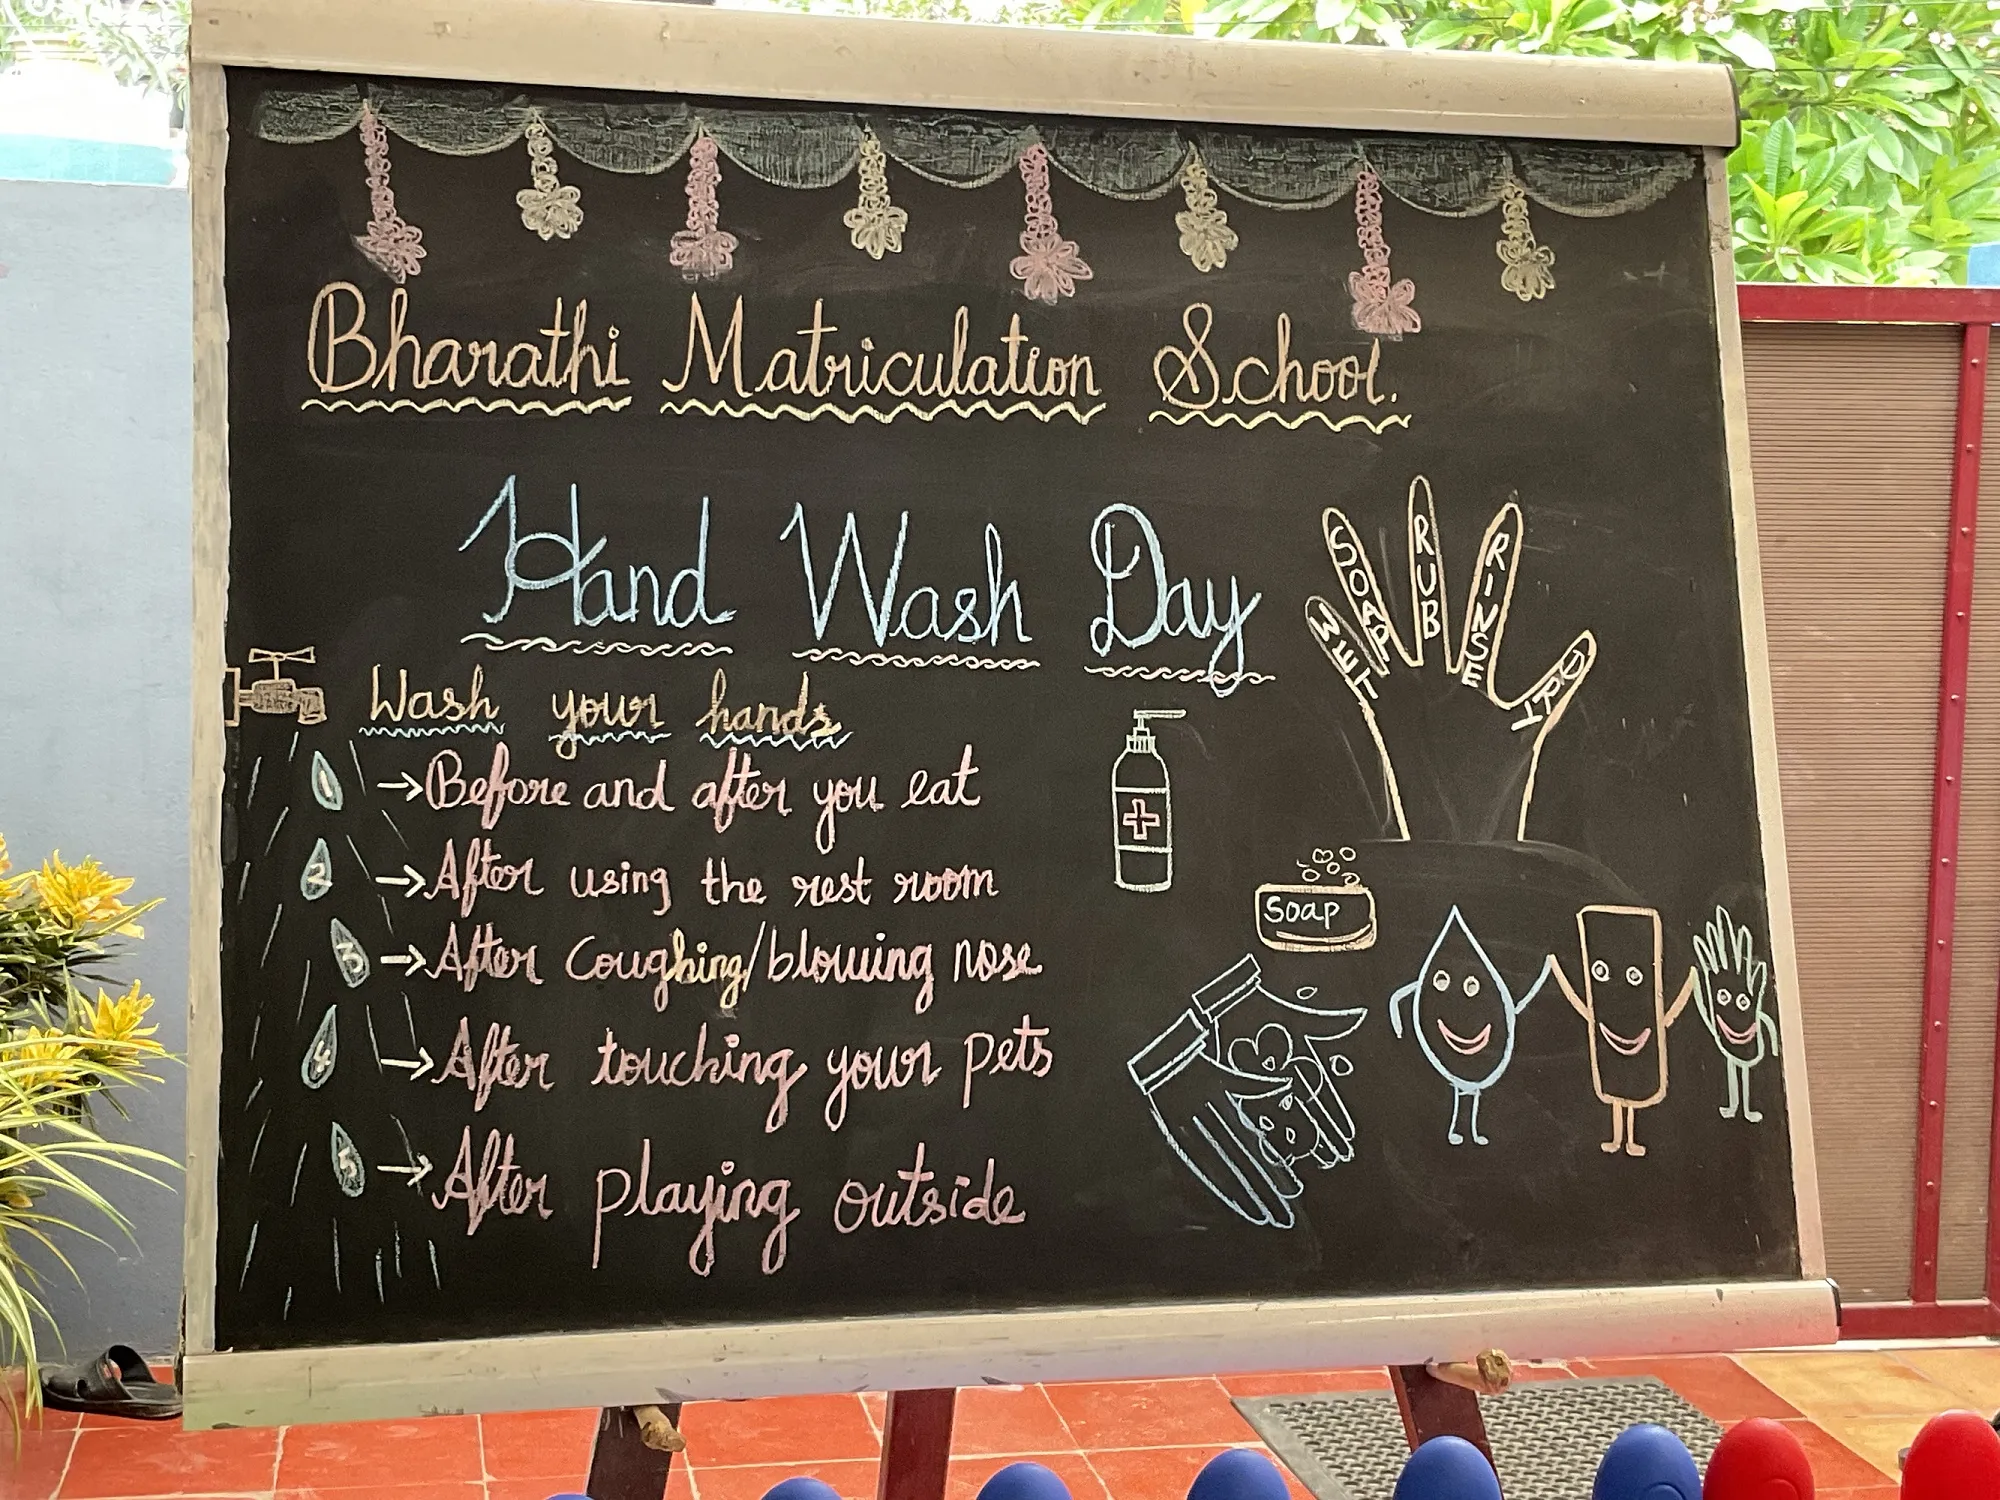 Bharathi Matriculation School.
Hand Wash Day
WET
SOAP
RUB
RINSE
DRY
Wash your hands
1 → Before and after you eat
2 → After using the rest room
3 → After Coughing/blowing nose
4 → After touching your pets
5 → After playing outside
Soap